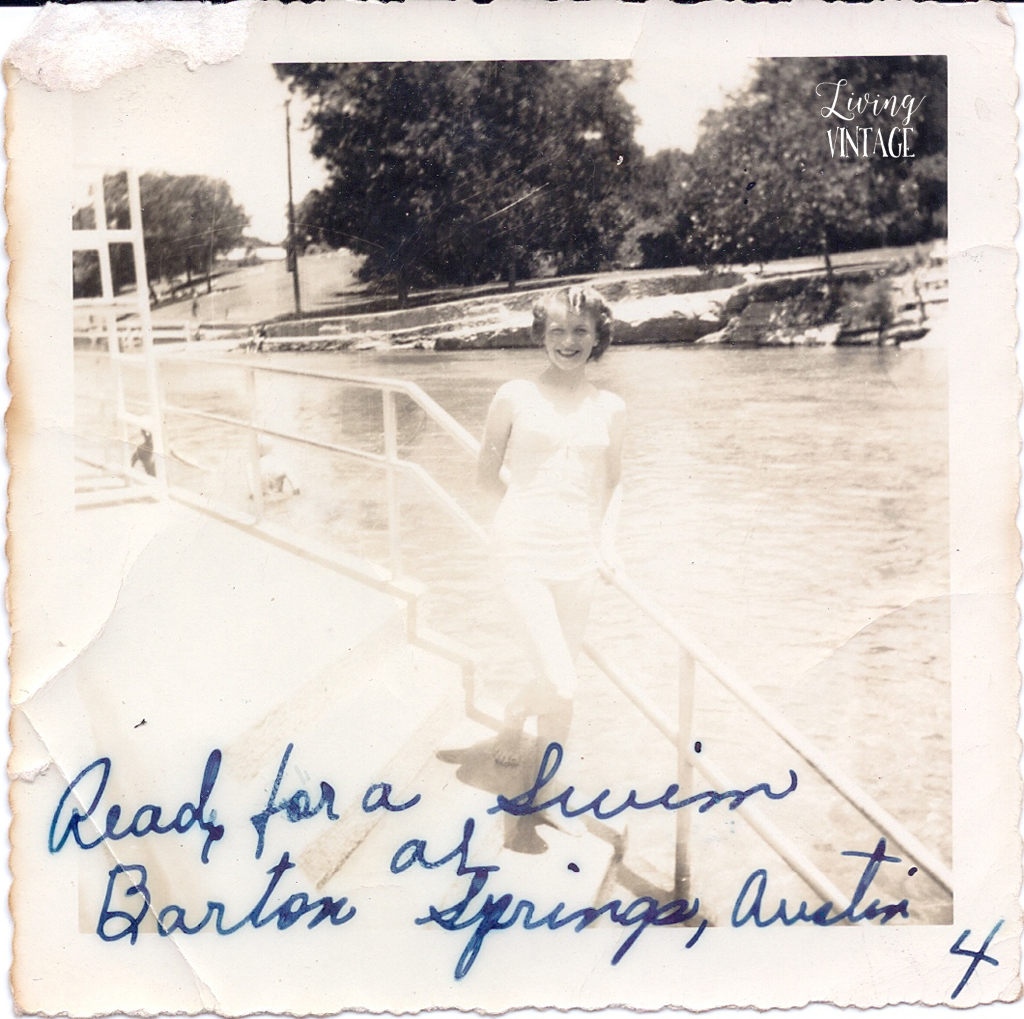 Living
VINTAGE
Ready for a Swim
at
Barton Springs, Austin
4